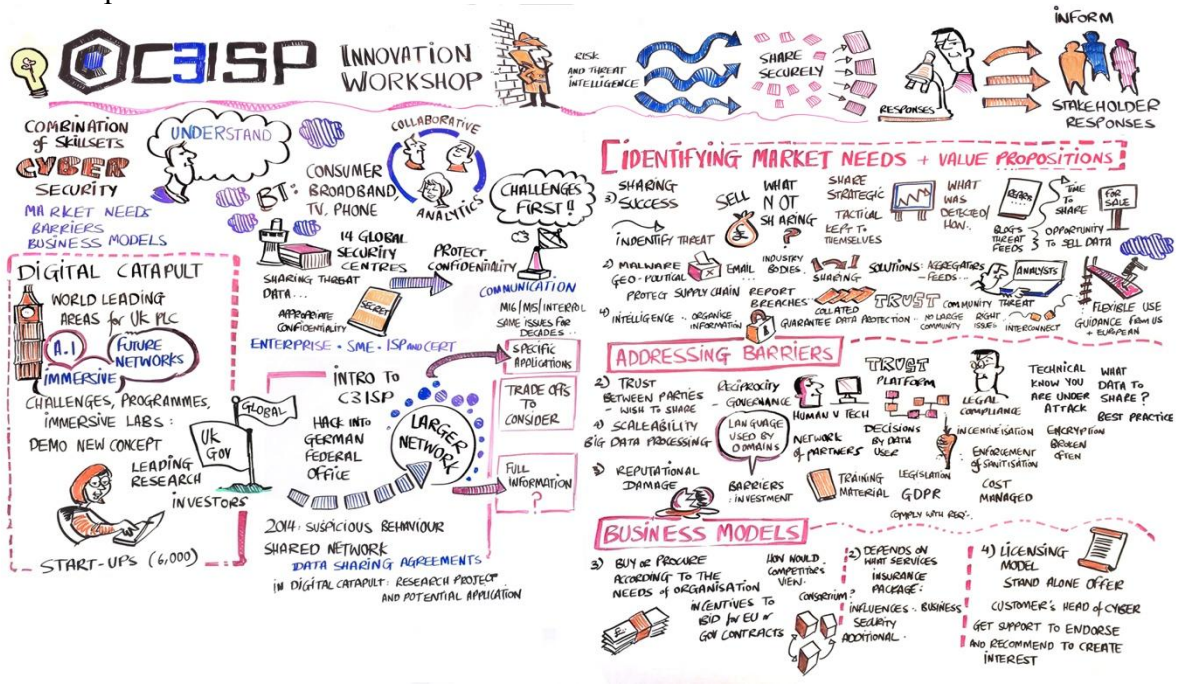 C3ISP
INNOVATION
WORKSHOP
RISK
AND THREAT
INTELLIGENCE
SHARE
SECURELY
RESPONSES
INFORM
STAKEHOLDER
RESPONSES
COMBINATION
of SKILLSETS
CYBER
SECURITY
MARKET NEEDS
BARRIERS
BUSINESS MODELS
UNDERSTAND
BT:
CONSUMER
BROADBAND,
TV, PHONE
COLLABORATIVE
ANALYTICS
CHALLENGES
FIRST!!
14 GLOBAL
SECURITY
CENTRES
SHARING THREAT
DATA...
PROTECT
CONFIDENTIALITY
COMMUNICATION
APPROPRIATE
CONFIDENTIALITY
SECRET
MI6/MI5/INTERPOL
SAME ISSUES FOR
DECADES...
ENTERPRISE • SME • ISP AND CERT
DIGITAL CATAPULT
WORLD LEADING
AREAS for UK PLC
A.I
FUTURE
NETWORKS
IMMERSIVE
CHALLENGES, PROGRAMMES,
IMMERSIVE LABS:
DEMO NEW CONCEPT
LEADING
RESEARCH
INVESTORS
START-UPS (6,000)
GLOBAL
UK
GOV
INTRO TO
C3ISP
HACK INTO
GERMAN
FEDERAL
OFFICE
LARGER
NETWORK
SPECIFIC
APPLICATIONS
TRADE OFFS
TO
CONSIDER
FULL
INFORMATION
?
2014: SUSPICIOUS BEHAVIOUR
SHARED NETWORK
DATA SHARING AGREEMENTS
IN DIGITAL CATAPULT: RESEARCH PROJECT
AND POTENTIAL APPLICATION
IDENTIFYING MARKET NEEDS + VALUE PROPOSITIONS
3) SHARING
SUCCESS
INDENTIFY THREAT
SELL
£
WHAT
NOT
SHARING
?
SHARE
STRATEGIC
TACTICAL
KEPT TO
THEMSELVES
WHAT
WAS
DETECTED/
HOW..
BLOGS
THREAT
FEEDS
TIME
TO
SHARE
OPPORTUNITY
TO SELL DATA
FOR
SALE
2) MALWARE
GEO-POLITICAL
EMAIL
INDUSTRY
BODIES.
SHARING
SOLUTIONS: AGGREGATORS
FEEDS...
ANALYSTS
PROTECT SUPPLY CHAIN
REPORT
BREACHES
COLLATED
TRUST
COMMUNITY THREAT
FLEXIBLE USE
GUIDANCE FROM US
+ EUROPEAN
4) INTELLIGENCE
ORGANISE
INFORMATION
GUARANTEE DATA PROTECTION
NO LARGE
COMMUNITY
RIGHT
ISSUES
INTERCONNECT
ADDRESSING BARRIERS
2) TRUST
BETWEEN PARTIES
- WISH TO SHARE
RECIPROCITY
GOVERNANCE
HUMAN V TECH
TRUST
PLATFORM
LEGAL
COMPLIANCE
TECHNICAL
KNOW YOU
ARE UNDER
ATTACK
WHAT
DATA TO
SHARE?
BEST PRACTICE
4) SCALEABILITY
BIG DATA PROCESSING
LANGUAGE
USED BY
DOMAINS
NETWORK
of PARTNERS
DECISIONS
BY DATA
USER
INCENTIVISATION
ENFORCEMENT
OF SANITISATION
ENCRYPTION
BROKEN
OFTEN
3) REPUTATIONAL
DAMAGE
BARRIERS
: INVESTMENT
TRAINING
MATERIAL
LEGISLATION
GDPR
COMPLY WITH REQ.
COST
MANAGED
BUSINESS MODELS
3) BUY or PROCURE
ACCORDING TO THE
NEEDS of ORGANISATION
INCENTIVES TO
BID for EU or
GOV CONTRACTS
£
HOW WOULD
COMPETITORS
VIEW.
CONSORTIUM?
2) DEPENDS ON
WHAT SERVICES
INSURANCE
PACKAGE:
INFLUENCES • BUSINESS
SECURITY
ADDITIONAL.
4) LICENSING
MODEL
STAND ALONE OFFER
CUSTOMER'S HEAD of CYBER
GET SUPPORT TO ENDORSE
AND RECOMMEND TO CREATE
INTEREST